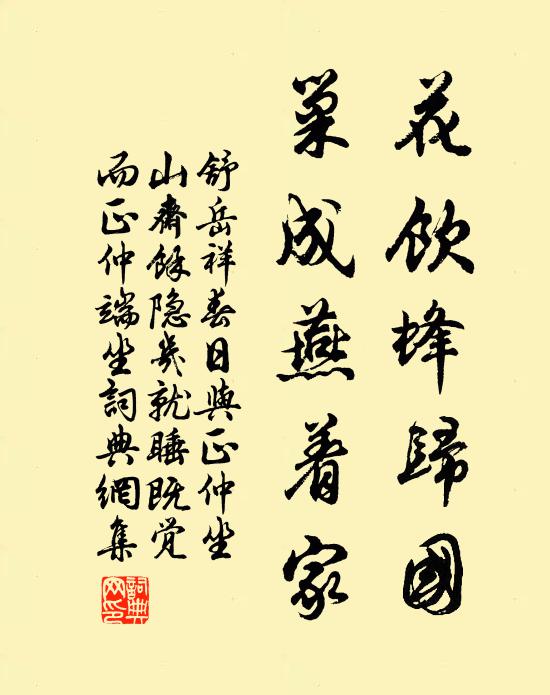 花飲蜂歸國
巢成燕着家
舒岳祥春日與正仲坐
山齋餘隐几就睡既覚
而正仲端坐詞典網集
詞典網印